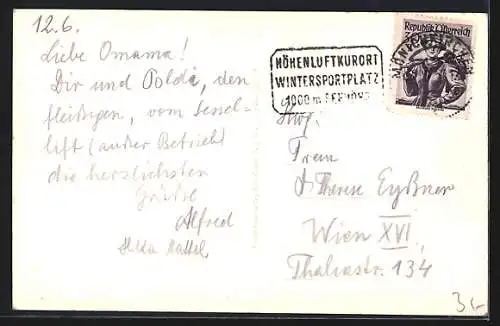 12.6.
Liebe Omama!
Dir und Poldi, den
fleißigen, vom Sessel-
lift (außer Betrieb)
die herzlichsten
Grüße
Alfred
Hilda
HÖHENLUFTKURORT
WINTERSPORTPLATZ
1000 m SEEHÖHE
Republik Österreich
MÖNICHKIRCHEN
Frau
Therese Eyßner
Wien XVI.
Thaliastr. 134
3.-